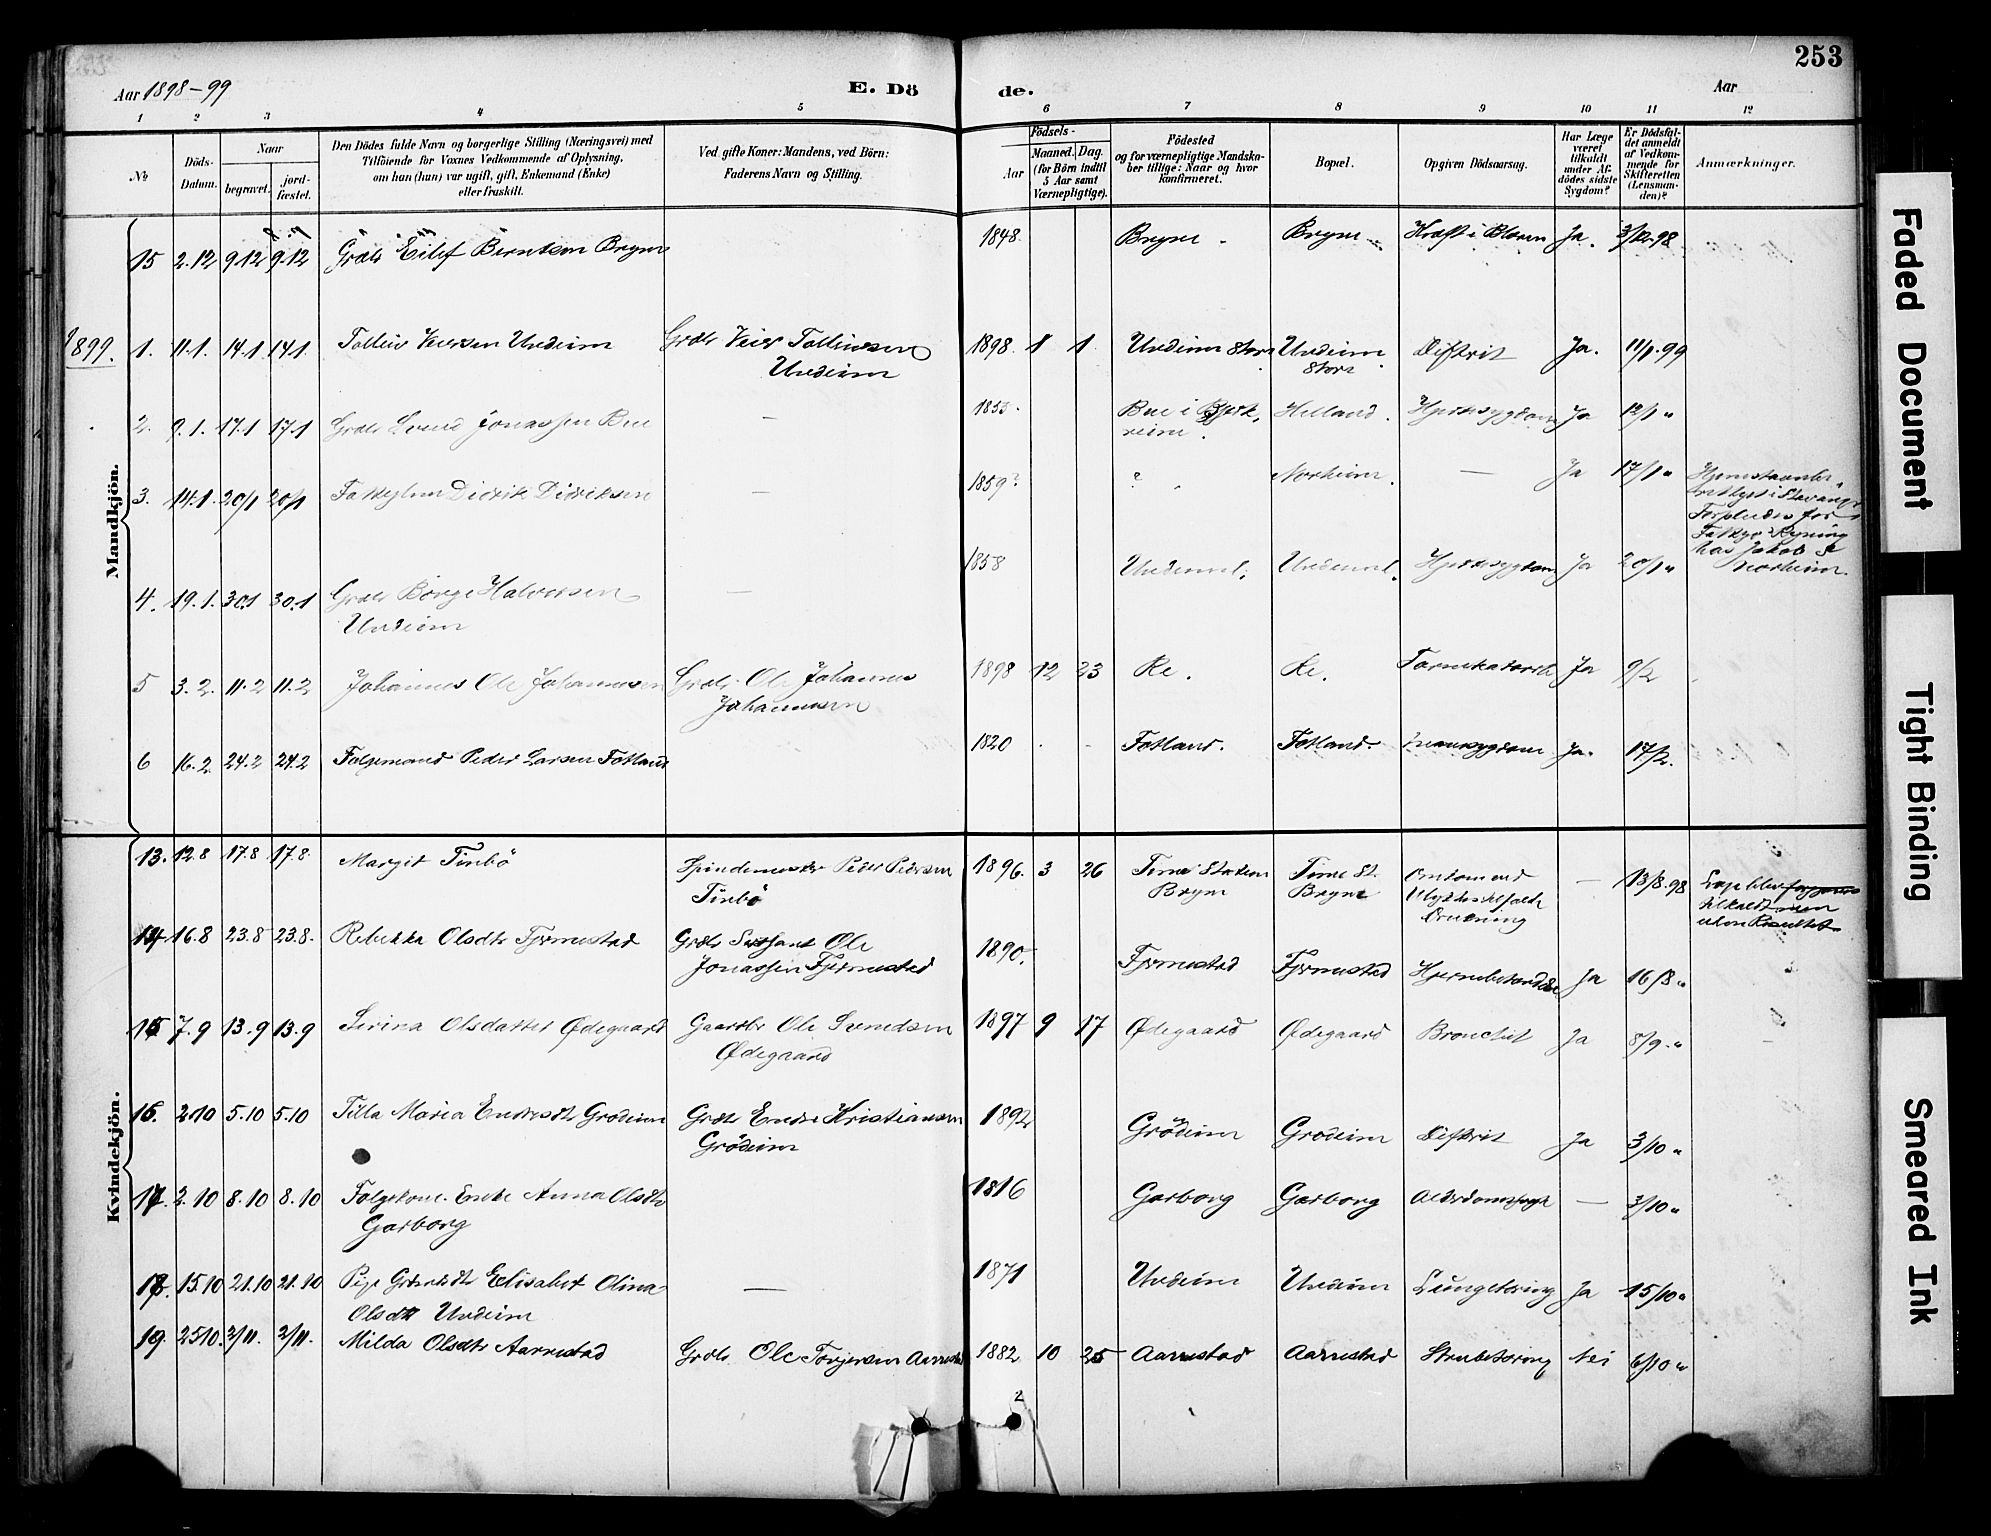 253
Aar 1898-99
E. Dö
de.
Aar
1 2 3 4 5 6 7 8 9 10 11 12
№
Döds-
Datum.
Naar
begravet.
jord-
fæstet.
Den Dödes fulde Navn og borgerlige Stilling (Næringsvei) med
Tilföiende for Voxnes Vedkommende af Oplysning,
om han (hun) var ugift, gift, Enkemand (Enke)
eller fraskilt.
Ved gifte Koner: Mandens, ved Börn:
Faderens Navn og Stilling.
Födsels-
Aar
Maaned. Dag.
(for Börn indtil
5 Aar samt
Værnepligtige).
Födested
og for værnepligtige Mandska-
ber tillige: Naar og hvor
konfirmeret.
Bopæl.
Opgiven Dödsaarsag.
Har Læge
været
tilkaldt
under Af-
dödes sidste
Sygdom?
Er Dödsfal-
det anmeldt
af Vedkom-
mende for
Skifteretten
(Lensman-
den)?
Anmærkninger.
Mandkjön.
15 2.12 9.12 9.12 Grdbr Eilef Berntsen Bryne 1848 Bryne Bryne Kræft i Blæren Ja. 3/12.98
1899.
1. 11.1. 14.1 14.1 Tollew Veiersen Undeim Grdbr Veier Tollewsen 1898 1 1 Undeim Store Undeim Difterit Ja. 11/1.99
Undeim
Store
2. 9.1. 17.1 17.1 Grdbr Svend Jonassen Bue — 1855. Bue i Bjerk- Helland. Hjertesygdom Ja 12/1 "
reim.
3. 14.1. 20/1 20/1 Fattiglem Didrik Didriksen — 1859? ? Norheim. — Ja 17/1 "
Stavanger
Jakob
Norheim.
4. 19.1. 30.1 30.1 Grdbr Börge Halvorsen — 1858 Undeim. Undeim. Hjertesygdom Ja 20/1 "
Undeim
5 3.2. 11.2 11.2 Johannes Ole Johannesen Grdbr Ole Johannes 1898 12 23 Re. Re. Tarmkatarrh Ja 9/2
Johannesen
6 16.2. 24.2 24.2 Folgemand Peder Larsen Fotland 1820 Fotland. Fotland. Ja. 17/2.
Kvindekjön.
13. 12.8 17.8 17.8. Margit Tinbö Spindemester Peder Pedersen 1896. 3 26 Time Station Time St. — 13/8.98
Tinbö
Bryne Bryne
tilkaldt men
uden Resultat
14 16.8 23.8 23.8. Rebekka Olsdtr Fjermestad Grdbr Sersjant Ole 1890. Fjermestad Fjermestad Hjernebetændelse Ja 16/8 "
Jonassen Fjermestad
15 7.9 13.9 13.9 Serina Olsdatter Ødegaard Gaardbr Ole Svendsen 1897 9 17 Ødegaard Ødegaard Bronchit Ja 8/9. "
Ødegaard
16. 2.10 5.10 5.10 Tilla Maria Endresdtr Grödeim Grdbr Endre Kristiansen 1892 Grödeim Grödeim Difterit Ja 3/10 "
Grödeim
17. 2.10 8.10 8.10 Folgekone Enke Anna Olsdtr 1816 Garborg Garborg Alderdomssvagh — 3/10 "
Garborg
18. 15.10 21.10 21.10 Pige Elisabet Olina — 1871 Undeim Undeim Lungetæring Ja 15/10 "
Olsdtr Undeim
19. 25.10. 2/11. 2/11. Milda Olsdtr Aarrestad Grdbr. Ole Torgersen Aarrestad 1882 10 25 Aarrestad Aarrestad Strubetæring Nei 6/10 "
2
Faded Document
Tight Binding
Smeared Ink